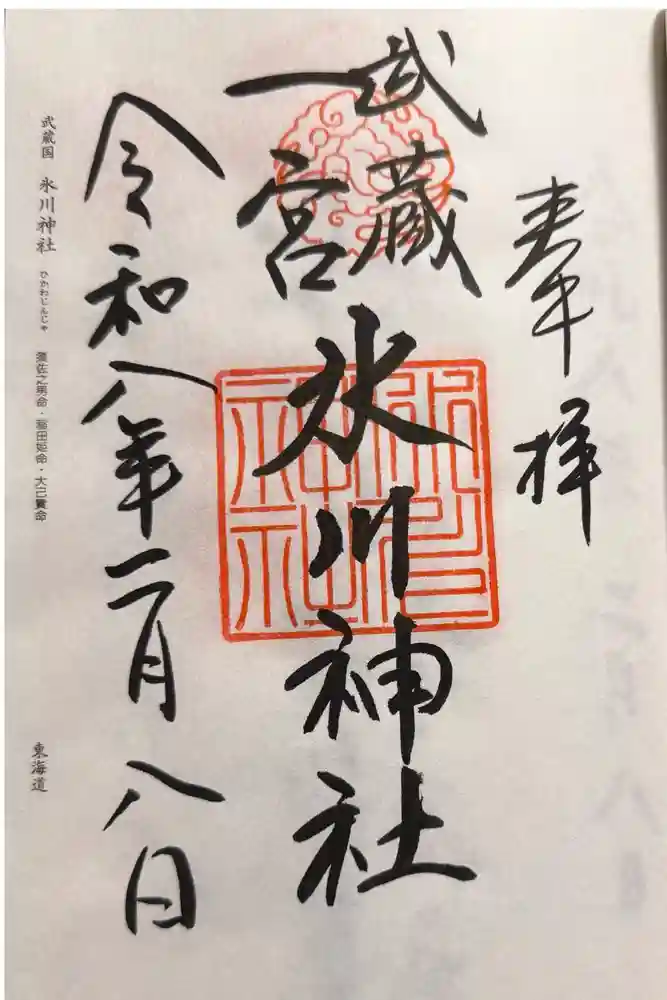 奉拝
武蔵
一宮
氷川神社
氷川
神社
令和八年二月八日
武蔵国 氷川神社 ひかわじんじゃ 須佐之男命・稲田姫命・大己貴命 東海道